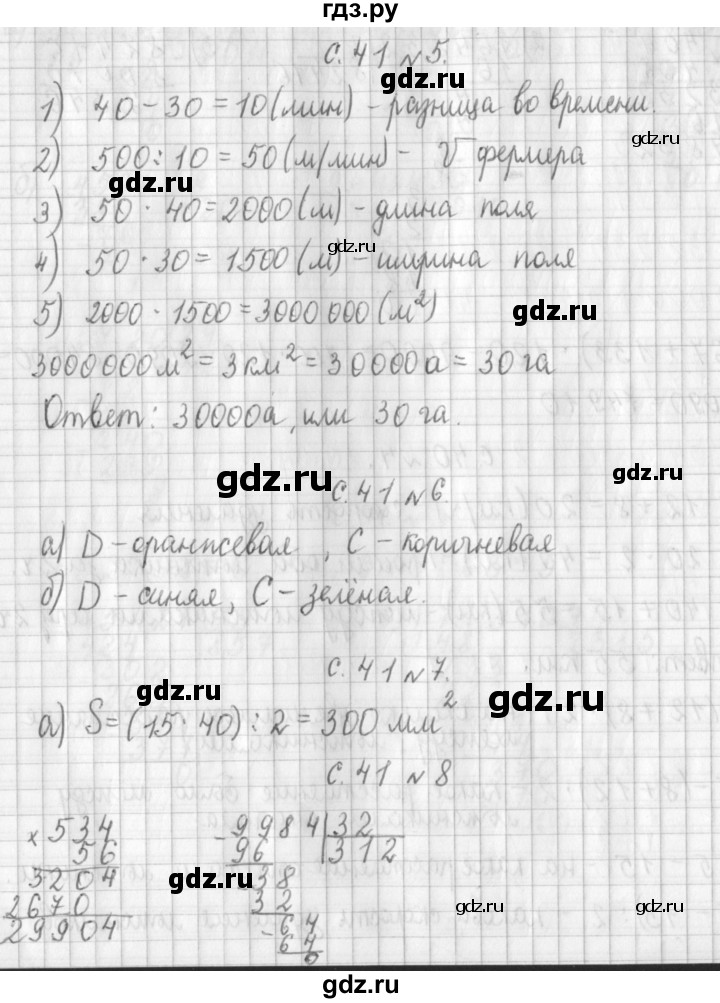 гдз.ру
с. 41 № 5.
gdz.ru
1) 40 - 30 = 10 (мин) - разница во времени.
gdz.ru
2) 500 : 10 = 50 (м/мин) - V фермера
gdz.ru
3) 50 · 40 = 2000 (м) - длина поля
gdz.ru
4) 50 · 30 = 1500 (м) - ширина поля
gdz.ru
5) 2000 · 1500 = 3000 000 (м²)
3000000 м² = 3 км² = 30000 а = 30 га
Ответ: 30000 а, или 30 га.
gdz.ru
gdz.ru
с. 41 № 6.
а) D - оранжевая, С - коричневая
б) D - синяя, С - зелёная.
с. 41 № 7.
gdz.ru
gdz.ru
а) S = (15 · 40) : 2 = 300 мм²
с. 41 № 8
× 534
56
3204
2670
29904
- 9984 | 32
96 | 312
- 38
32
- 64
64
0
gdz.ru
gdz.ru
gdz.ru
gdz.ru